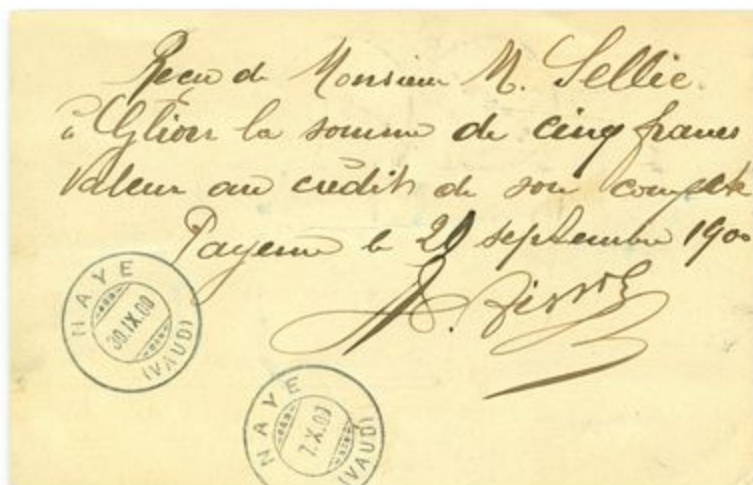 Reçu de Monsieur M. Sellie.
à Glion la somme de cinq francs
Valeur au crédit de son compte
Payerne le 20 septembre 1900
NAYE
30.IX.00
(VAUD)
NAYE
7.X.00
(VAUD)